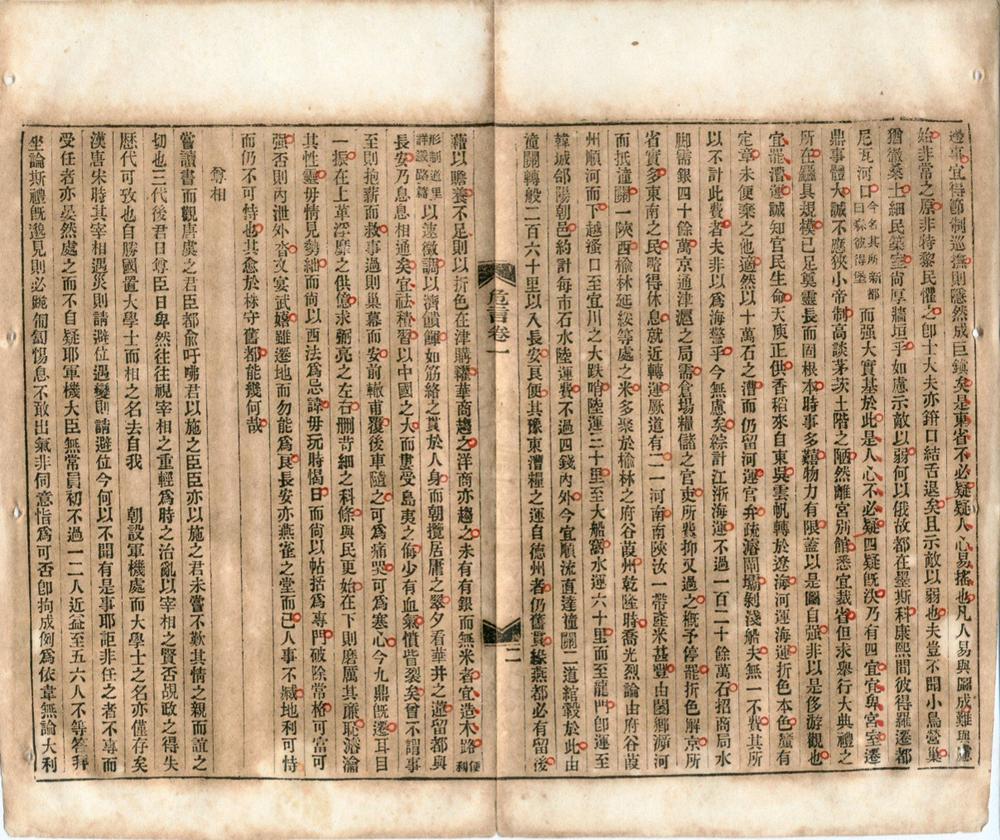 邊事宜得節制巡撫則隱然成巨鎮矣是東省不必疑疑人心易搖也凡人易與圖成難與慮
始非常之原非特黎民懼之卽士大夫亦箝口結舌退矣且示敵以弱也夫豈不聞小鳥營巢
猶徹桑土細民築室尚厚牆垣乎如慮示敵以弱何以俄故都在墨斯科康熙間彼得羅遷都
尼瓦河口今名其所新都曰森彼得堡而强大實基於此是人心不必疑四疑旣決乃有四宜宜卑宮室遷
鼎事體大誠不應狹小帝制高談茅茨土階之陋然離宮別館悉宜裁省但求舉行大典禮之
所在麤具規模已足奠靈長而固根本時事多囏物力有限蓋以是圖自强非以是侈游觀也
宜罷漕運誠知官民生命天庾正供香稻來自東吳雲帆轉於遼海河運海運折色本色釐有
定章未便棄之他適然以十萬石之漕而仍留河運官弁疏濬閘壩剝淺船夫無一不費其所
以不計此費者夫非以爲海警乎今無慮矣綜計江浙海運不過一百二十餘萬石招商局水
脚需銀四十餘萬京通津滬之局需倉場糧儲之官吏所費抑又過之概予停罷折色解京所
省實多東南之民略得休息就近轉運厥道有二一河南南陝汝一帶產米甚豐由閿鄉溯河
而抵潼關一陝西榆林延綏等處之米多聚於榆林之府谷葭州乾隆時喬光烈論由府谷葭
州順河而下越壺口至宜川之大趺哨陸運二十里至大船窩水運六十里而至龍門卽運至
韓城郃陽朝邑約計每市石水陸運費不過四錢內外今宜順流直達潼關二道綰轂於此由
潼關轉般二百六十里以入長安良便其豫東漕糧之運自德州者仍舊貫緣燕都必有留後
危言卷一
二
藉以贍養不足則以折色在津購糴華商趨之洋商亦趨之未有有銀而無米者宜造木路便利
形制道里詳議路篇以速徵調以濟饋饟如筋絡之貫於人身而朝攬居庸之翠夕看華井之蓮留都與
長安乃息息相通矣宜祛積習以中國之大而屢受島夷之侮少有血氣憤皆裂矣曾不謂事
至則抱薪而救事過則巢幕而安前轍甫覆後車隨之可爲痛哭可爲寒心今九鼎旣遷耳目
一振在上革浮靡之供億求弼亮之左右刪苛細之科條與民更始在下則磨厲其廉恥濬瀹
其性靈毋情見勢絀而尚以西法爲忌諱毋玩時愒日而尚以帖括爲專門破除常格可富可
强否則內泄外沓文宴武嬉雖遷地而勿能爲良長安亦燕雀之堂而已人事不臧地利可恃
而仍不可恃也其愈於株守舊都能幾何哉
尊相
嘗讀書而觀唐虞之君臣都兪吁咈君以施之臣臣亦以施之君未嘗不歎其情之親而誼之
切也三代後君日尊臣日卑然往往視宰相之重輕爲時之治亂以宰相之賢否覘政之得失
歷代可攷也自勝國置大學士而相之名去自我　朝設軍機處而大學士之名亦僅存矣
漢唐宋時其宰相遇災則請避位遇變則請避位今何以不聞有是事耶詎非任之者不專而
受任者亦晏然處之而不自疑耶軍機大臣無常員初不過一二人近益至五六人不等答拜
坐論斯禮旣邈見則必跪匍匐惕息不敢出氣非伺意恉爲可否卽拘成例爲依韋無論大利